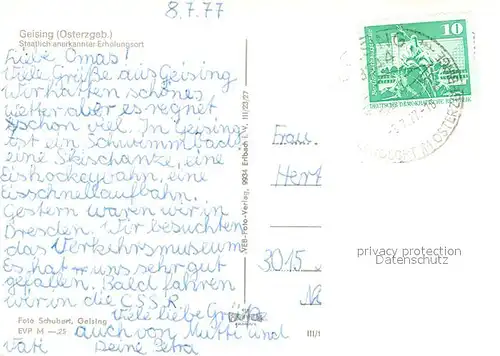 8.7.77
Geising (Osterzgeb.)
Staatlich anerkannter Erholungsort
Liebe Omas!
Viele Grüße aus Geising
Wir hatten schönes
Wetter aber es regnet
schon viel. In Geising
ist ein Schwimmbad
eine Skischanze, eine
Eishockeybahn, eine
Eisschnellaufbahn.
Gestern waren wir in
Dresden. Wir besuchten
das Verkehrsmuseum
Es hat uns sehr gut
gefallen. Bald fahren
wir in die CSSR.
Viele liebe Grüße
auch von Mutti und
Vati Deine Petra
Foto Schubert, Geising
EVP M —.25
VEB-Foto-Verlag, 9934 Erlbach i. V.
10
DEUTSCHE DEMOKRATISCHE REPUBLIK
Frau
Hert
3015
privacy protection
Datenschutz